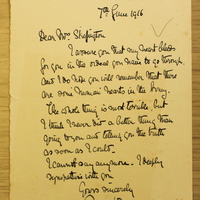 7th June 1916
Dear Mrs Skeffington
I assure you that my heart bleeds
for you in the ordeal you have to go through,
and I do hope you will remember that there
are some human hearts in the Army.
The whole thing is such terrible but
I think I never did a better thing than
going to you and telling you the truth
as soon as I could.
I cannot say any more. I deeply
sympathise with you
Yours sincerely